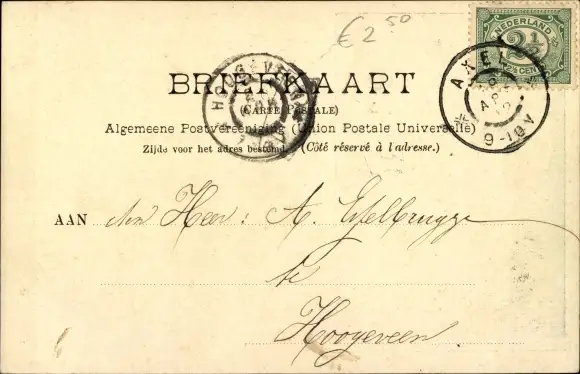 € 2 50
NEDERLAND
2½
CENT
AXEL
9-10V
HOOGEVEEN
BRIEFKAART
(CARTE POSTALE)
Algemeene Postvereeniging (Union Postale Universelle)
Zijde voor het adres bestemd. (Côté réservé à l'adresse.)
AAN den Heer: A.
te
Hoogeveen